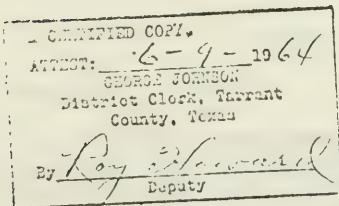 CERTIFIED COPY.
ATTEST: 6-9-1964
GEORGE JOHNSON
District Clerk, Tarrant
County, Texas
By Roy
Deputy